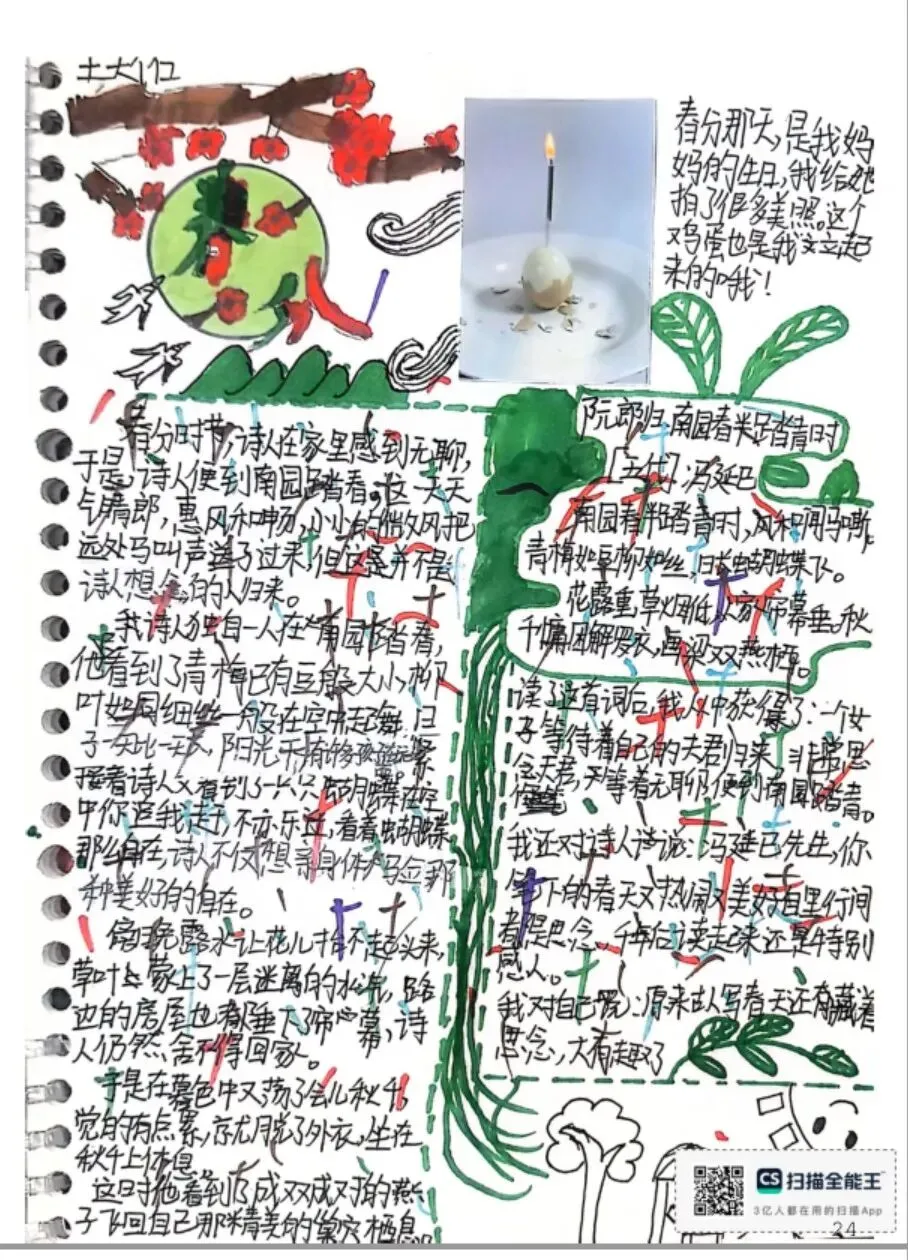 春分
春分那天,是我妈
妈的生日,我给她
拍了很多美照。这个
鸡蛋也是我立起
来的哦!
春分时节,诗人在家里感到无聊,
于是,诗人便到南园踏春。这一天天
气晴郎,惠风和畅,小小的微风把
远处马叫声送了过来,但这是并不是
诗人想念的人归来。
诗人独自一人在南园踏春,
他看到了青梅已有豆般大小,柳
叶如同细丝一般在空中起舞。日
子一天比一天长,阳光
接着诗人又看到了一只只蝴蝶在空
中你追我赶,不亦乐乎,看着蝴蝶
那么自在,诗人不仅想亲身体验那
种美好的自在。
傍晚露水让花儿抬不起头来,
草叶上蒙上了一层迷离的水汽,路
边的房屋也都垂下帘幕,诗
人仍然舍不得回家。
于是在暮色中又荡了会儿秋千,
觉的有点累,就脱了外衣,坐在
秋千上休息。
这时他看到了成双成对的燕
子飞回自己那精美的巢穴栖息。
阮郎归·南园春半踏青时
[五代]:冯延巳
南园春半踏青时,风和闻马嘶,
青梅如豆柳如丝,日长蝴蝶飞。
花露重,草烟低,人家帘幕垂。秋
千慵困解罗衣,画梁双燕栖。
读了这首词后,我从中获得了:一个女
子等待着自己的夫君归来,非常思
念夫君,天天等着无聊便到南园踏青。
我还对诗人诗说:冯延巳先生,你
笔下的春天又热闹又美好,字里行间
都是思念,千年后读起来还是特别
感人。
我对自己说:原来古人写春天还有藏着
思念,太有趣了
CS 扫描全能王
3亿人都在用的扫描App
24